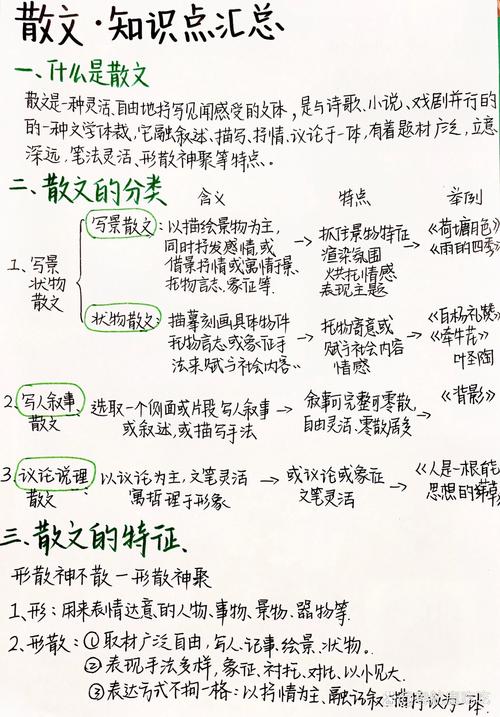 散文·知识点汇总
一、什么是散文
散文是一种灵活、自由地抒写见闻感受的文体，是与诗歌、小说、戏剧并行的
的一种文学体裁，它融叙述、描写、抒情、议论于一体，有着题材广泛，立意
深远，笔法灵活、形散神聚等特点。
二、散文的分类 含义 特点 举例
1、写景
状物
散文
写景散文：以描绘景物为主，
同时抒发感情，或
借景抒情或寓情于景、
托物言志、象征等.
→ 抓住景物特征
渲染氛围
烘托情感
表现主题
→ 《荷塘月色》
《雨的四季
状物散文：描摹刻画具体物件
托物言志或象征手
法来赋与社会内容。
→ 托物寓意或
赋与社会内容
情感
→ 《白杨礼赞》
《牵牛花》
叶圣陶
2、写人叙事
散文
选取一个侧面或片段写人叙事
或叙述，或描写手法
→ 叙事可完整可零散，
自由灵活、零散居多
→ 《背影》
3、议论说理
散文
以议论为主，文笔灵活
寓哲理于形象
→ 或议论或象征
文笔灵活
→ 《人是一根能
思想的苇草
三、散文的特征、
形散神不散一形散神聚
1、形：用来表情达意的人物、事物、景物、器物等.
2、形散：①取材广泛自由，写人、记事、绘景、状物。
②表现手法多样，象征、衬托、对比、以小见大.
③表达方式不拘一格：以抒情为主，融记叙、描特议为一体.